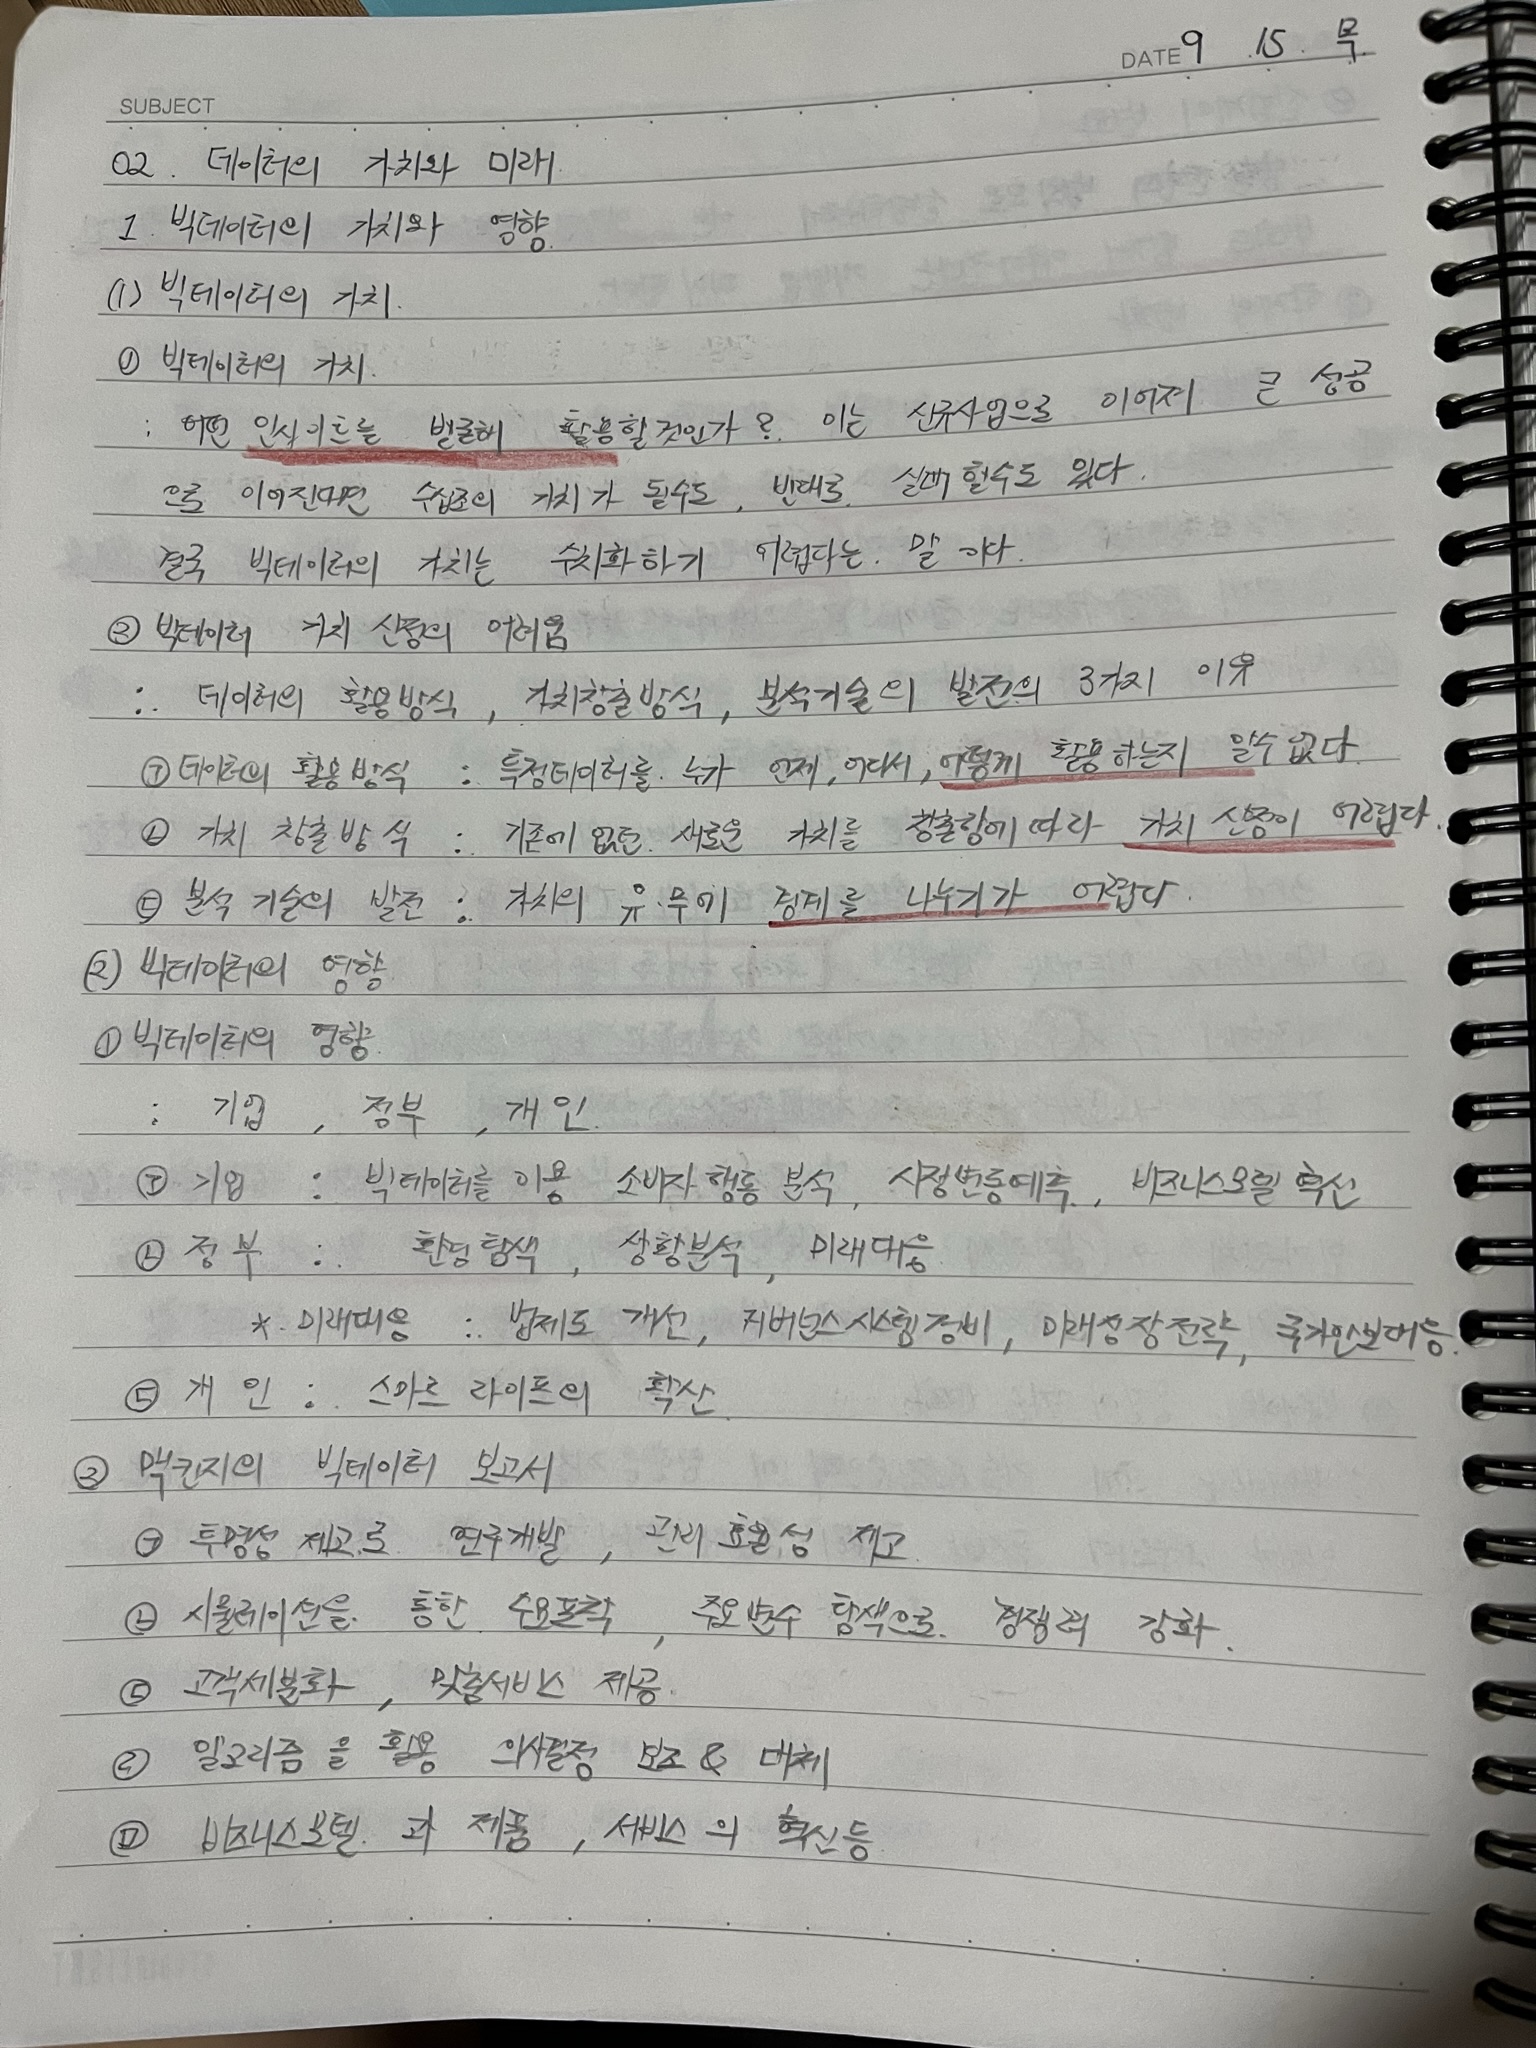 DATE 9 . 15 . 목
SUBJECT
02. 데이터의 가치와 미래
1 빅데이터의 가치와 영향
(1) 빅데이터의 가치.
① 빅데이터의 가치.
: 어떤 인사이트를 발굴해 활용할것인가? 이는 신규사업으로 이어져 큰 성공
으로 이어진다면 수십조의 가치가 될수도, 반대로 실패할수도 있다.
결국 빅데이터의 가치는 수치화하기 어렵다는 말 이다.
② 빅데이터 가치 산정의 어려움
: 데이터의 활용방식, 가치창출방식, 분석기술의 발전의 3가지 이유
㉠ 데이터의 활용방식 : 특정데이터를 누가 언제, 어디서, 어떻게 활용하는지 알수없다.
㉡ 가치 창출방식 : 기존에 없던 새로운 가치를 창출함에따라 가치 산정이 어렵다.
㉢ 분석 기술의 발전 : 가치의 유·무에 경계를 나누기가 어렵다.
(2) 빅데이터의 영향
① 빅데이터의 영향
: 기업, 정부, 개인.
㉠ 기업 : 빅데이터를 이용 소비자 행동 분석, 시장변동예측, 비즈니스모델 혁신
㉡ 정부 : 환경탐색, 상황분석, 미래대응
* 미래대응 : 법제도 개선, 거버넌스시스템정비, 미래성장전략, 국가안보대응.
㉢ 개인 : 스마트 라이프의 확산
② 맥킨지의 빅데이터 보고서
㉠ 투명성 제고로 연구개발, 관리 효율성 제고
㉡ 시뮬레이션을 통한 수요포착, 주요변수 탐색으로 경쟁력 강화.
㉢ 고객세분화, 맞춤서비스 제공.
㉣ 알고리즘을 활용 의사결정 보조 & 대체
㉤ 비즈니스모델 과 제품, 서비스의 혁신등